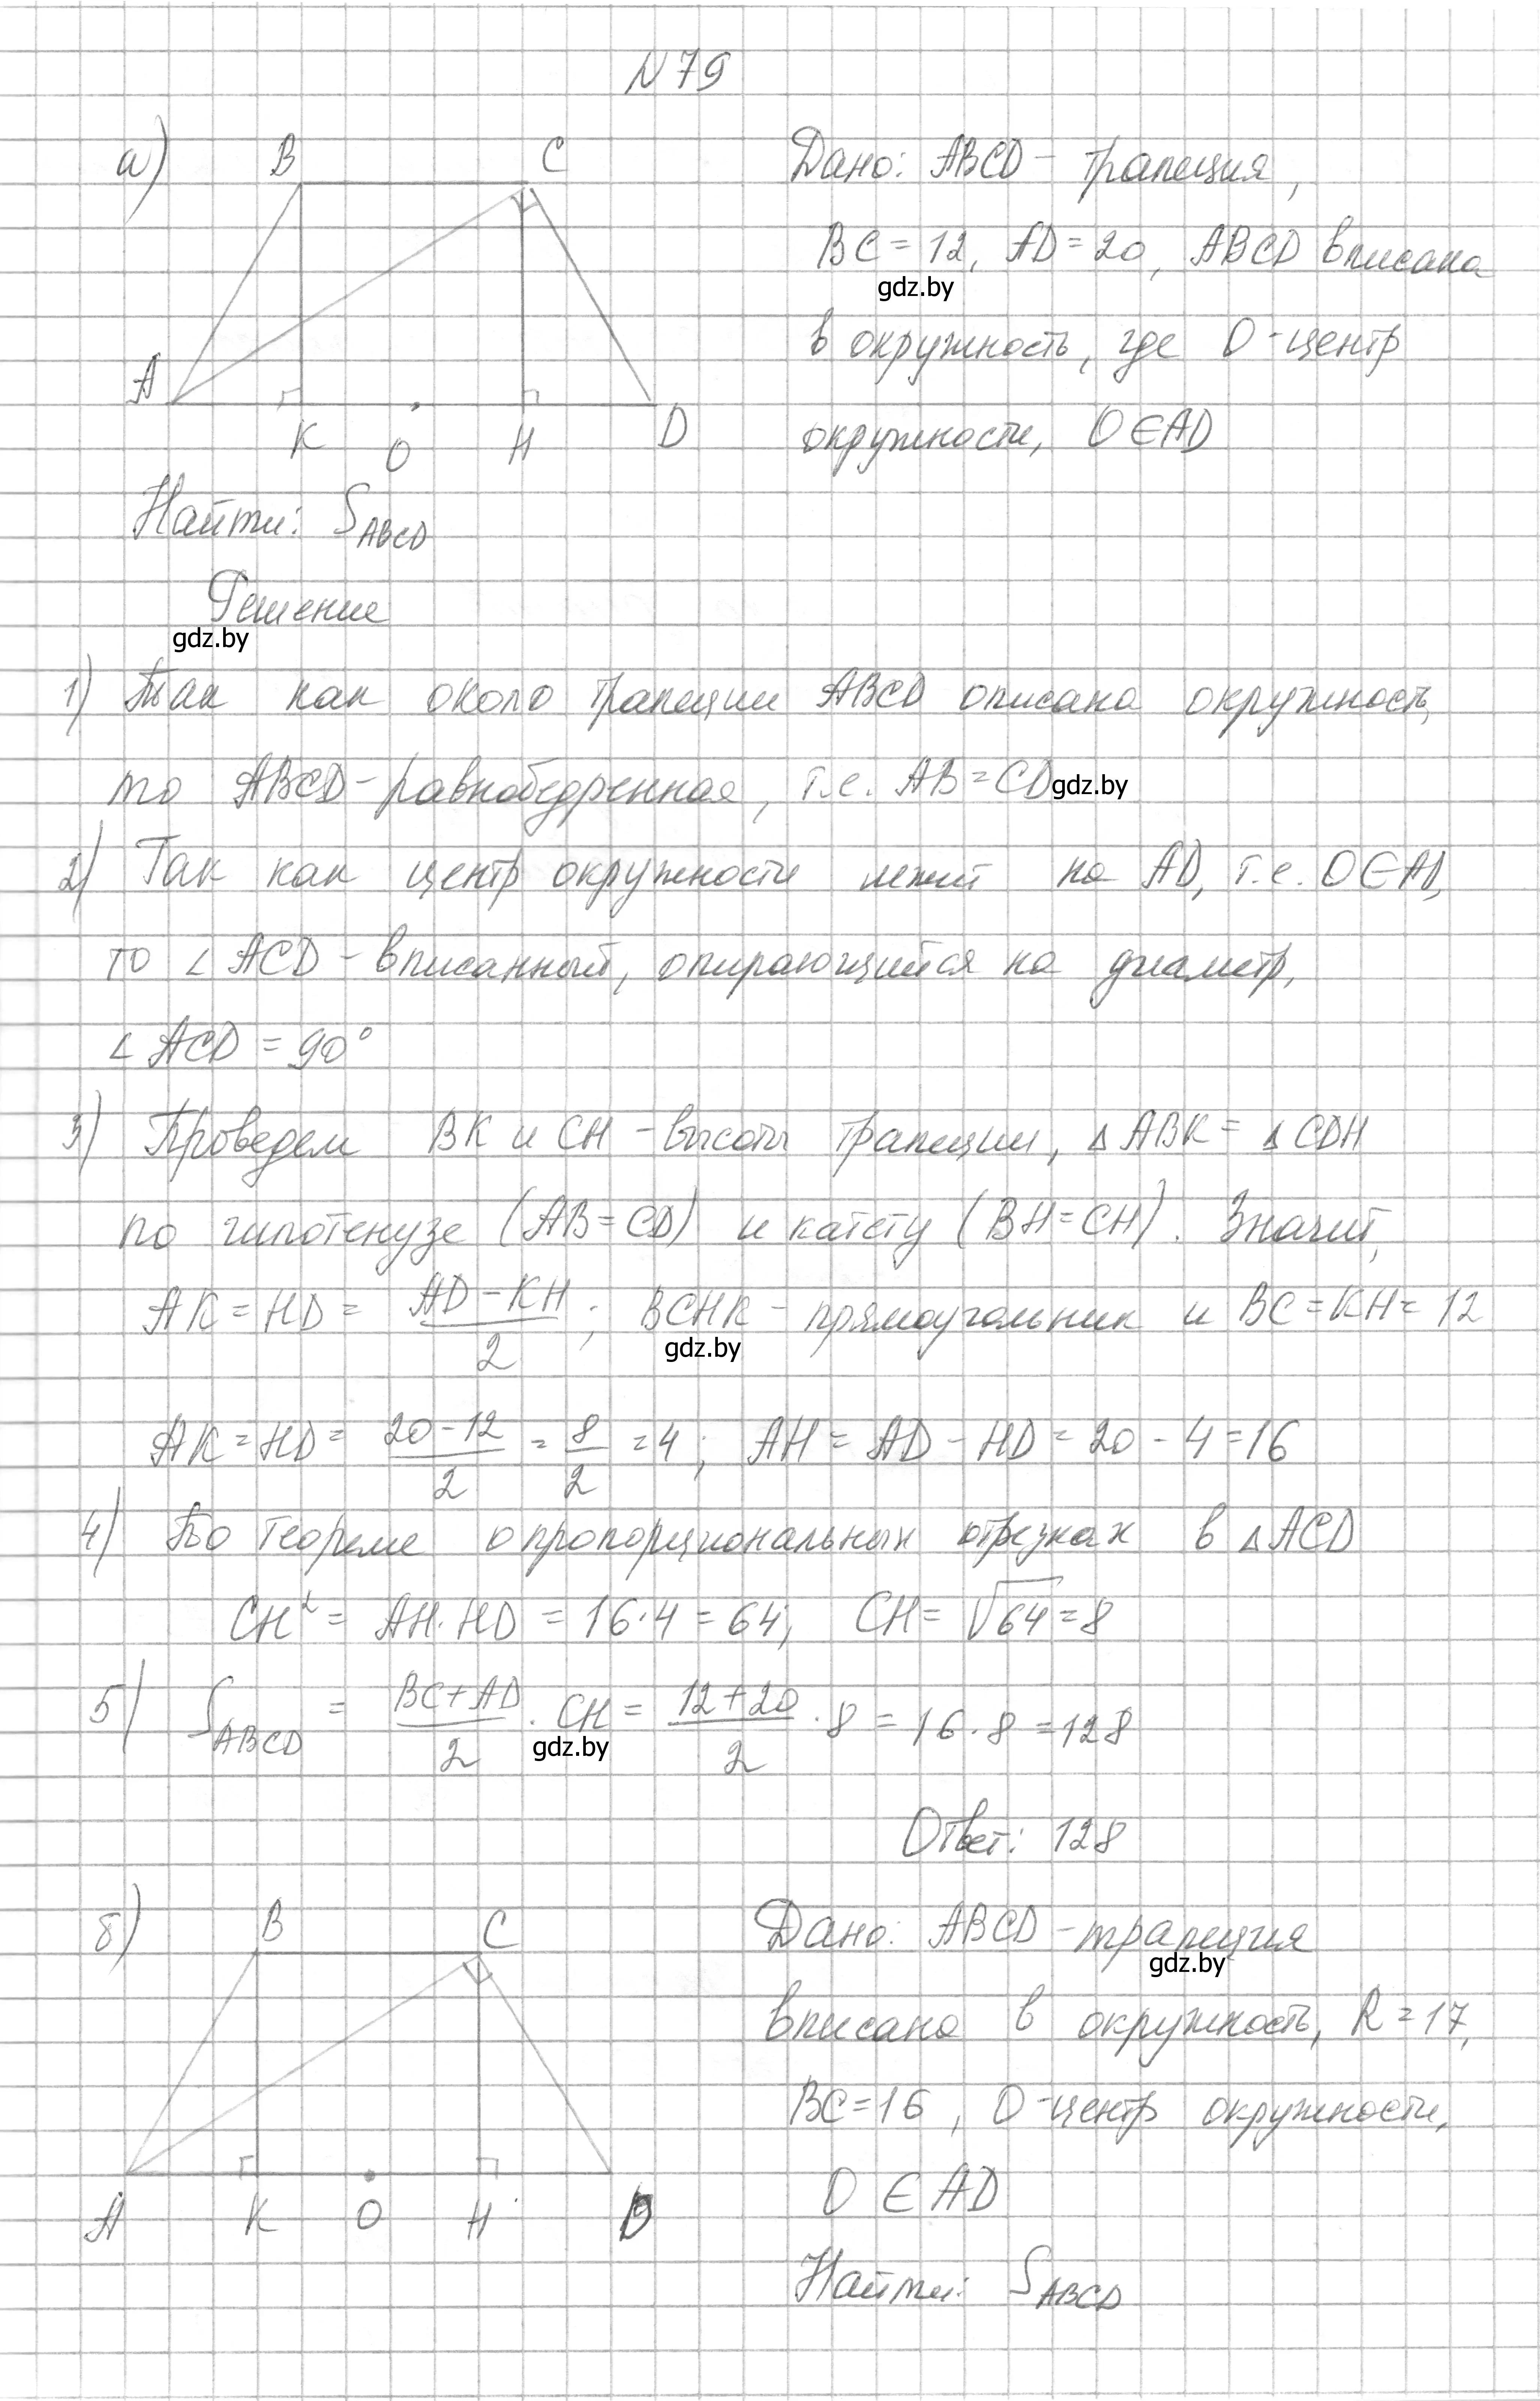 N 79
а) B C
A K O H D
Дано: ABCD - трапеция,
BC = 12, AD = 20, ABCD вписана
gdz.by
в окружность, где O - центр
окружности, O ∈ AD
Найти: S_ABCD
Решение
gdz.by
1) Так как около трапеции ABCD описана окружность,
то ABCD - равнобедренная, т.е. AB = CD gdz.by
2) Так как центр окружности лежит на AD, т.е. O ∈ AD,
то ∠ ACD - вписанный, опирающийся на диаметр,
∠ ACD = 90°
3) Проведем BK и CH - высоты трапеции, △ ABK = △ CDH
по гипотенузе (AB = CD) и катету (BH = CH). Значит,
AK = HD = (AD - KH)/2; BCHK - прямоугольник и BC = KH = 12
gdz.by
AK = HD = (20 - 12)/2 = 8/2 = 4; AH = AD - HD = 20 - 4 = 16
4) По теореме о пропорциональных отрезках в △ ACD
CH² = AH · HD = 16 · 4 = 64; CH = √64 = 8
5) S_ABCD = (BC + AD)/2 · CH = (12 + 20)/2 · 8 = 16 · 8 = 128
gdz.by
Ответ: 128
б) B C
A K O H D
Дано: ABCD - трапеция
gdz.by
вписана в окружность, R = 17,
BC = 16, O - центр окружности,
O ∈ AD
Найти: S_ABCD